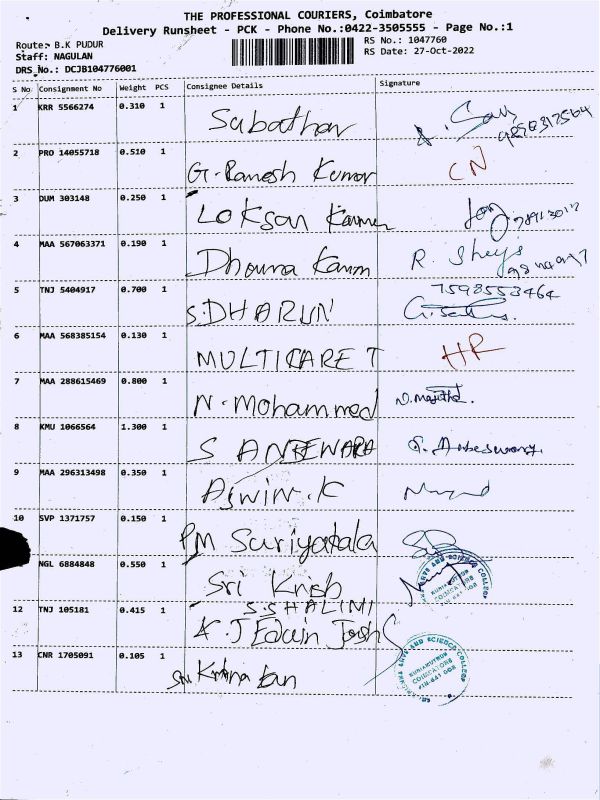 THE PROFESSIONAL COURIERS, Coimbatore
Delivery Runsheet - PCK - Phone No.:0422-3505555 - Page No.:1
Route: B.K PUDUR
RS No.: 1047760
Staff: NAGULAN
RS Date: 27-Oct-2022
DRS No.: DCJB104776001
S No Consignment No Weight PCS Consignee Details Signature
1 KRR 5566274 0.310 1 Sabathar
2 PRO 14055718 0.510 1 G. Ramesh Kumar CN
3 DUM 303148 0.250 1 Loksan
4 MAA 567063371 0.190 1 R.
7598553464
5 TNJ 5404917 0.700 1 S.DHARUN
6 MAA 568385154 0.130 1 MULTICARE T HR
7 MAA 288615469 0.800 1 N. Mohammed
8 KMU 1066564 1.300 1 S
9 MAA 296313498 0.350 1 Aswin.K
10 SVP 1371757 0.150 1 PM Suriyakala
NGL 6884848 0.550 1 Sri Krish
S.SHALINI
12 TNJ 105181 0.415 1 A. J Edwin Josh
13 CNR 1705091 0.105 1 Sri Krishna
ARTS AND SCIENCE COLLEGE
KUNIAMUTHUR
COIMBATORE
641 008